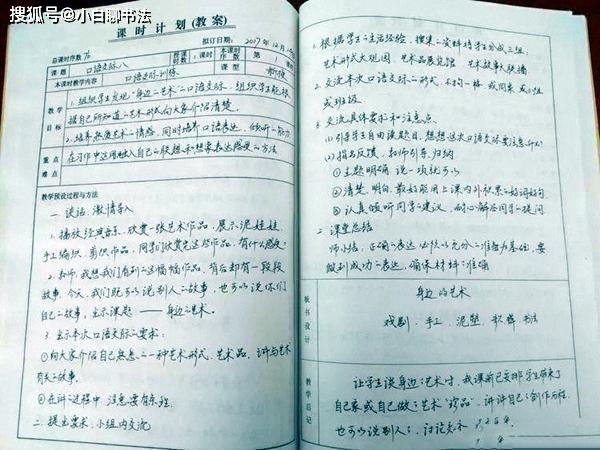 搜狐号@小白聊书法
课时计划(教案)
拟订日期:2017年12月
总课时序数 76
授课时数
本课时序数
第1课时
课题 口语交际八
课型 新授
本课时教学内容 口语交际训练
教学目标
1.组织学生发现"身边的艺术"的口语交际,组织学生能根
据自己所知道的艺术形式向大家介绍清楚
2.培养热爱艺术的情感,同时培养口语表达、倾听的能力
重点难点
在习作中运用融入自己的联想和想象表达感受的方法
教学预设过程与方法
一 谈话,激情导入
1.播放经典音乐,欣赏一张艺术作品,展示泥娃娃、
手工编织、剪纸作品,同学们欣赏完这些作品,有什么感受?
2.老师:我想我们看到的这幅幅作品,背后却有一段段
故事,今天,我们既可以说别人的故事,也可以说你们
自己的故事,出示课题——身边的艺术。
3.出示本次口语交际的要求:
①向大家介绍自己熟悉的一种艺术形式、艺术品,讲与艺术
有关的故事。
②在讲的过程中,注意要有条理
二、提出要求,小组内交流
1.根据学生的生活经验,搜集的资料将学生分成三组,
艺术形式大观园 艺术品展览馆 艺术故事大联播
2.交流本次口语交际的形式,不拘一格,或同桌,或小组
或班级
3.交流具体要求和注意点。
(1)引导学生自由读题目,想想这次口语交际要注意什么?
(2)指名反馈,教师引导、归纳
①主题明确 说一项就可以
②清楚,明白,最好能用上课内外积累的好词好句
③认真倾听同学的建议,耐心解答同学的提问
三 课堂总结
师小结:正确的表达必须以充分的准备为基础,要
做到成功的表达,确保材料的准确
板书设计
身边的艺术
戏剧、手工、泥塑、书法
教学后记
让学生谈身边的艺术时,我课前已安排学生带来了
自己家或自己做的艺术"珍品",讲讲自己的创作历程,
也可以说别人的,讨论交流